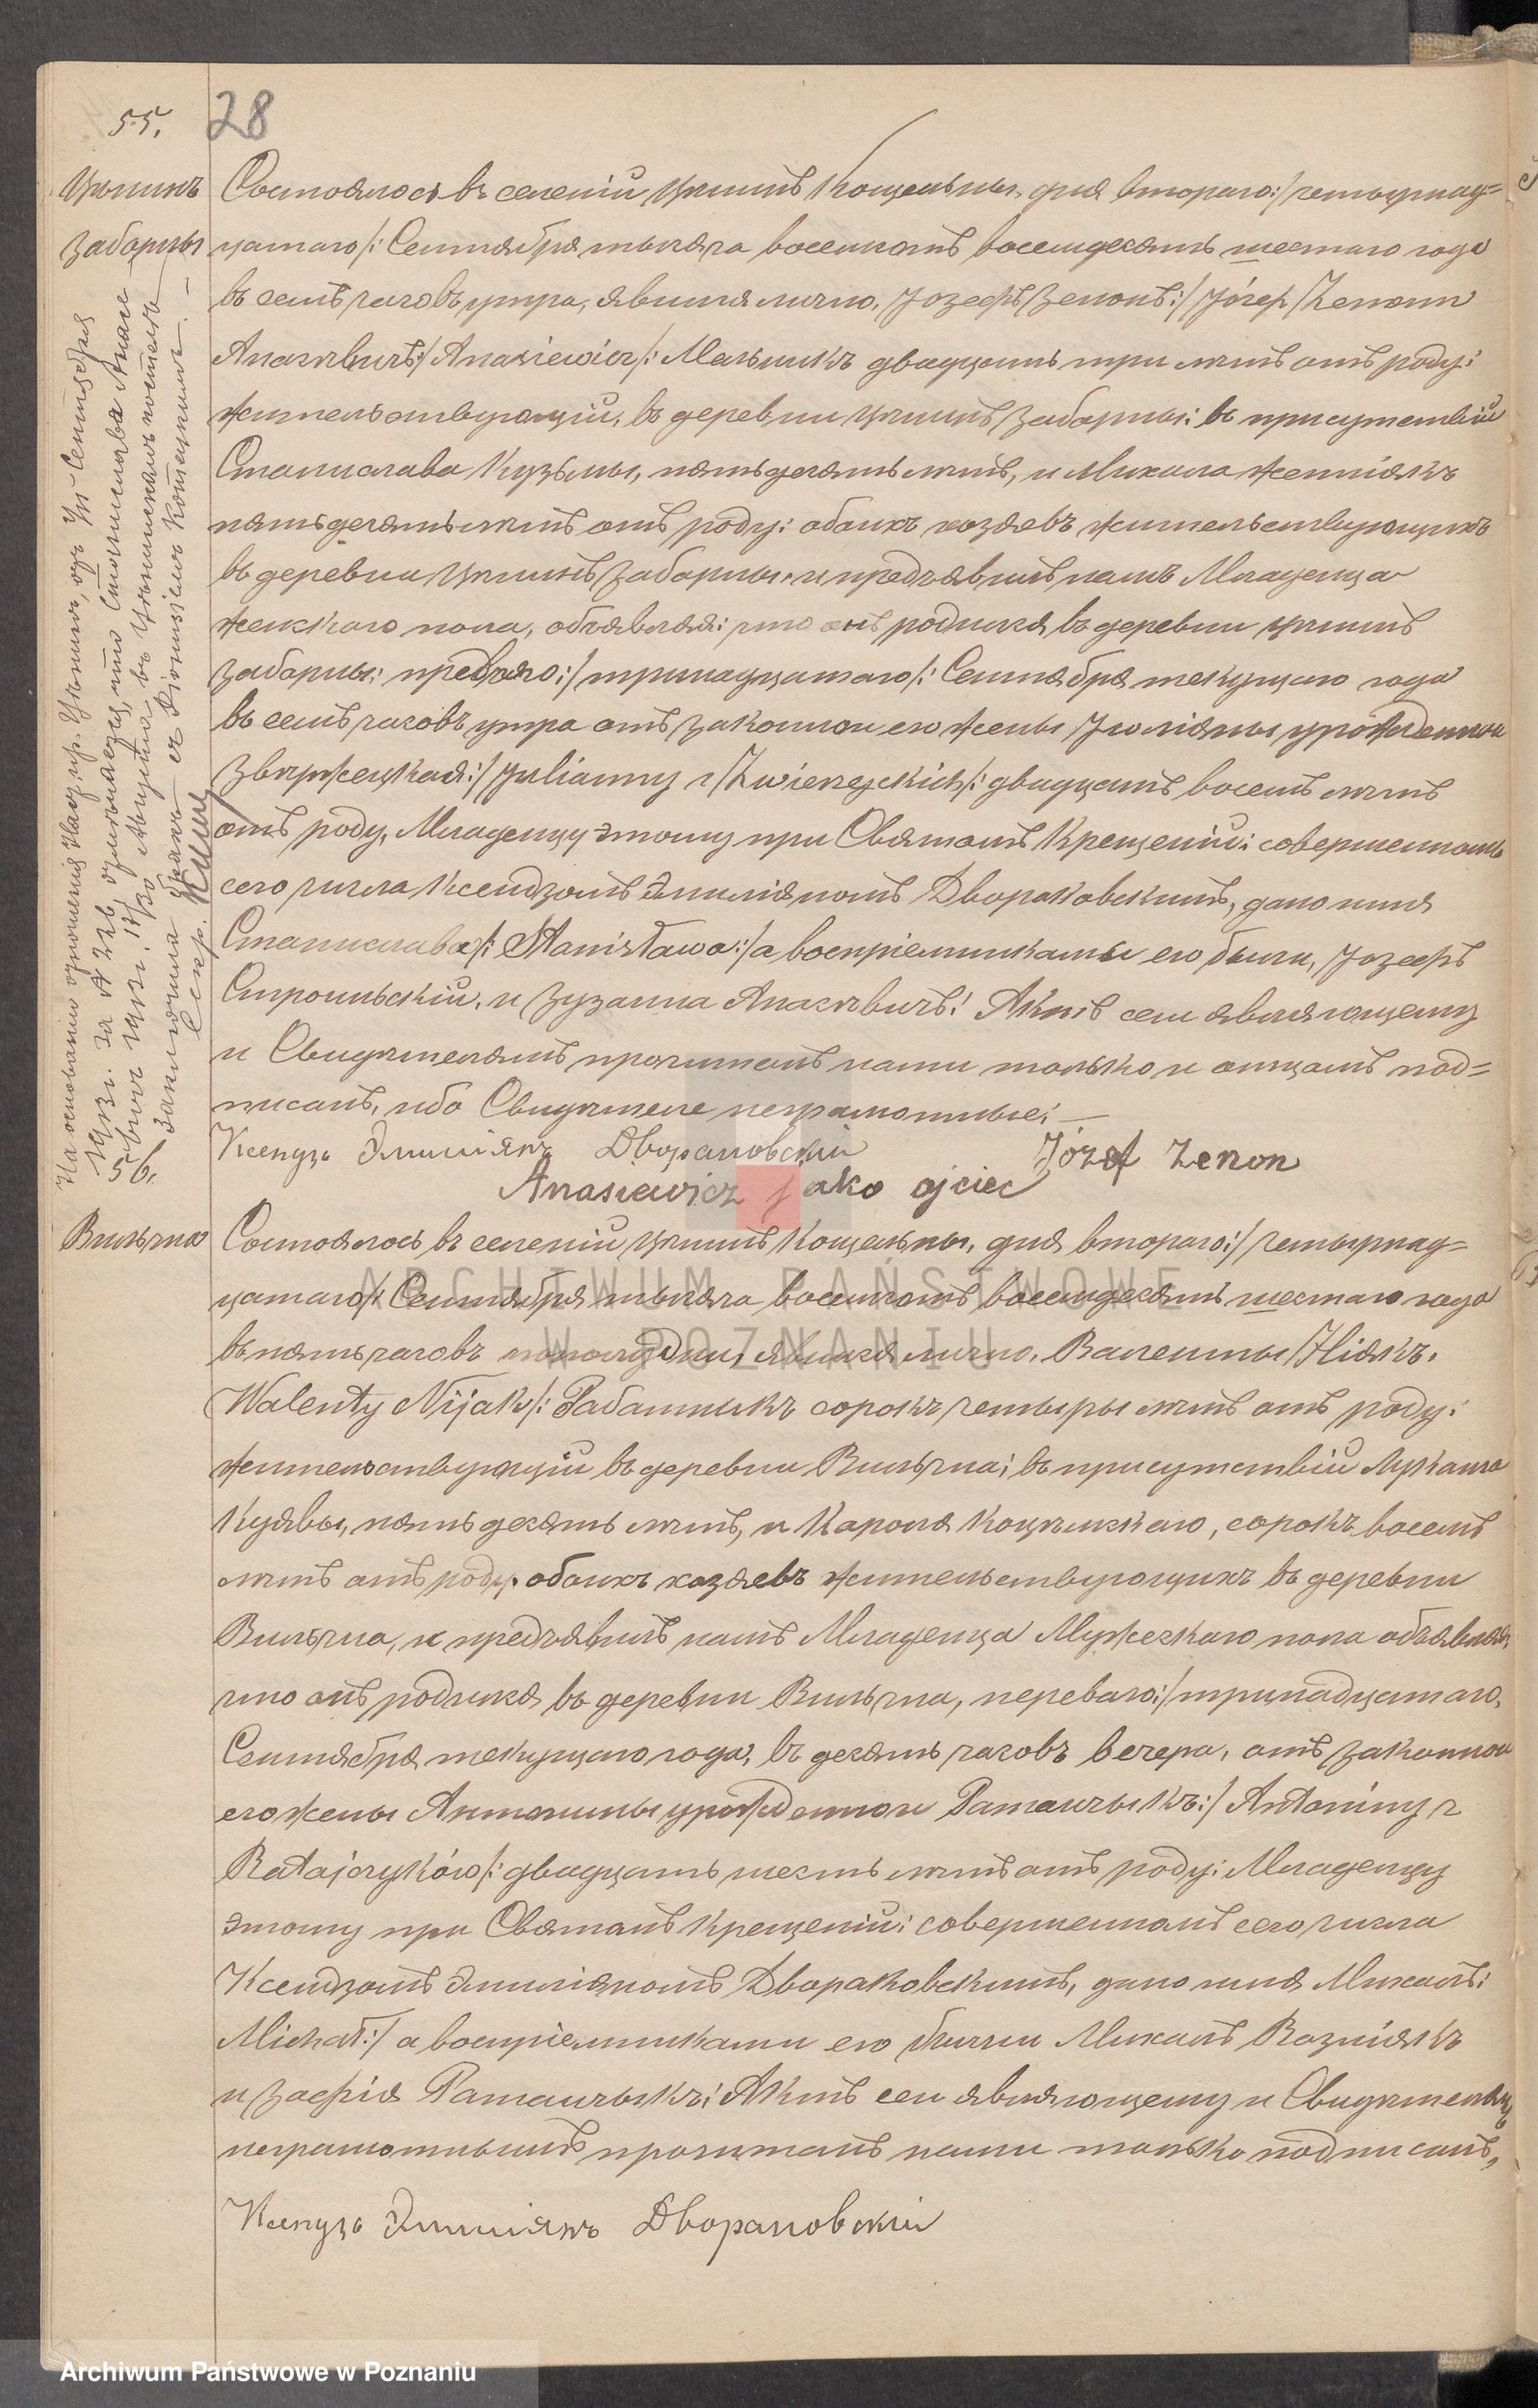 55.
28
Цѣнинъ
Заборны
Состоялось въ селеніи Цѣнинъ Косцельны, дня втораго:/четырнад=
цатаго/: Сентября тысяча восемсотъ восемдесятъ шестаго года
въ семъ часовъ утра, явился лично, Іозефъ Зенонъ:/Józef Zenon
Анасѣвичъ:/Anasiewicz/: Мельникъ двадцать три лѣтъ отъ роду:
жительствующій, въ деревни Цѣнинъ Заборны: въ присутствіи
Станислава Кузьмы, пятьдесятъ лѣтъ, и Михала
пятьдесятъ лѣтъ отъ роду: обоихъ хозяевъ жительствующихъ
въ деревни Цѣнинъ Заборны, и предъявилъ намъ Младенца
женскаго пола, объявляя: что онъ родился въ деревни Цѣнинъ
Заборны: перваго:/тринадцатаго/: Сентября текущаго года
въ семъ часовъ утра отъ законной его жены Юліянны урожденной
Звѣржецкая:/Julianny z Zwierzyckich/: двадцать восемъ лѣтъ
отъ роду, Младенцу этому при Святомъ Крещеніи: совершенномъ
сего числа Ксендзомъ Эмиліяномъ Двораковскимъ, дано имя
Станислава/: Stanisława:/а воспріемниками его были, Іозефъ
и Зузанна Анасѣвичъ: Актъ сей являющему
и Свидѣтелямъ прочитанъ нами только и отцомъ под=
писанъ, ибо Свидѣтеле неграмотные:—
Ксендзъ Эмиліянъ Двораковскій Józef Zenon
Anasiewicz jako ojciec
56.
Вильчна
Состоялось въ селеніи Цѣнинъ Косцельны, дня втораго:/четырнад=
цатаго/: Сентября тысяча восемсотъ восемдесятъ шестаго года
въ пять часовъ пополудни, явился лично, Валенты Ніякъ,
Walenty Nijak/: Работникъ сорокъ четыры лѣтъ отъ роду:
жительствующій въ деревни Вильчна; въ присутствіи Лукаша
Куявы, пятьдесятъ лѣтъ, и Кароля, сорокъ восемъ
лѣтъ отъ роду, обоихъ хозяевъ жительствующихъ въ деревни
Вильчна, и предъявилъ намъ Младенца Мужескаго пола объявляя,
что онъ родился въ деревни Вильчна, переваго:/тринадцатаго,
Сентября текущаго года, въ десять часовъ вечера, отъ законной
его жены Антонины урожденной Ратайчыкъ:/Antoniny z
Ratajczyków/: двадцать шесть лѣтъ отъ роду: Младенцу
этому при Святомъ Крещеніи: совершенномъ сего числа
Ксендзомъ Эмиліяномъ Двораковскимъ, дано имя Михалъ:
Michał:/ а воспріемниками его были Михалъ Возніякъ
и Зофія Ратайчыкъ: Актъ сей являющему и Свидѣтелямъ
неграмотнымъ прочитанъ нами только подписанъ,
Ксендзъ Эмиліянъ Двораковскій
ARCHIWUM PAŃSTWOWE
W POZNANIU
Archiwum Państwowe w Poznaniu